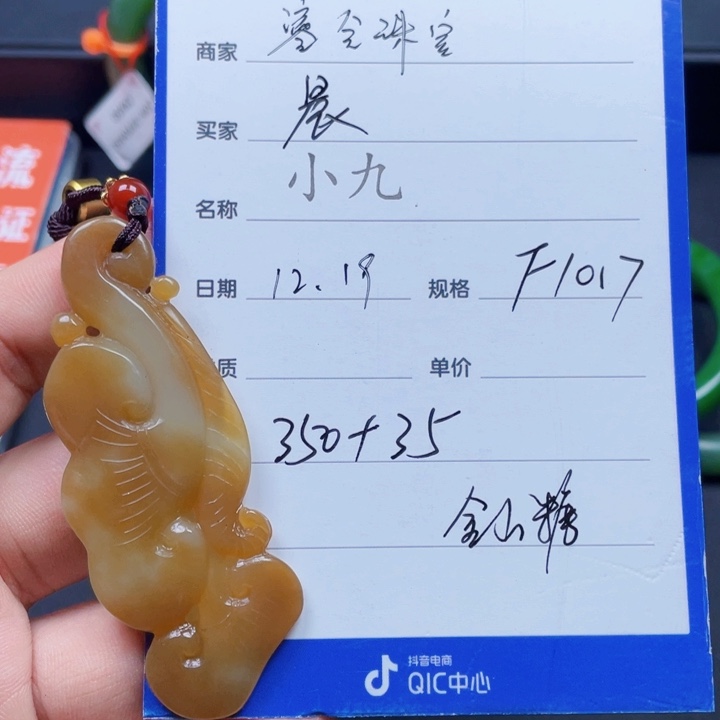 商家
珠宝
买家 晨
名称 小九
日期 12.19 规格 F1017
质 单价
350+35
金山糖
抖音电商
QIC中心
流
证